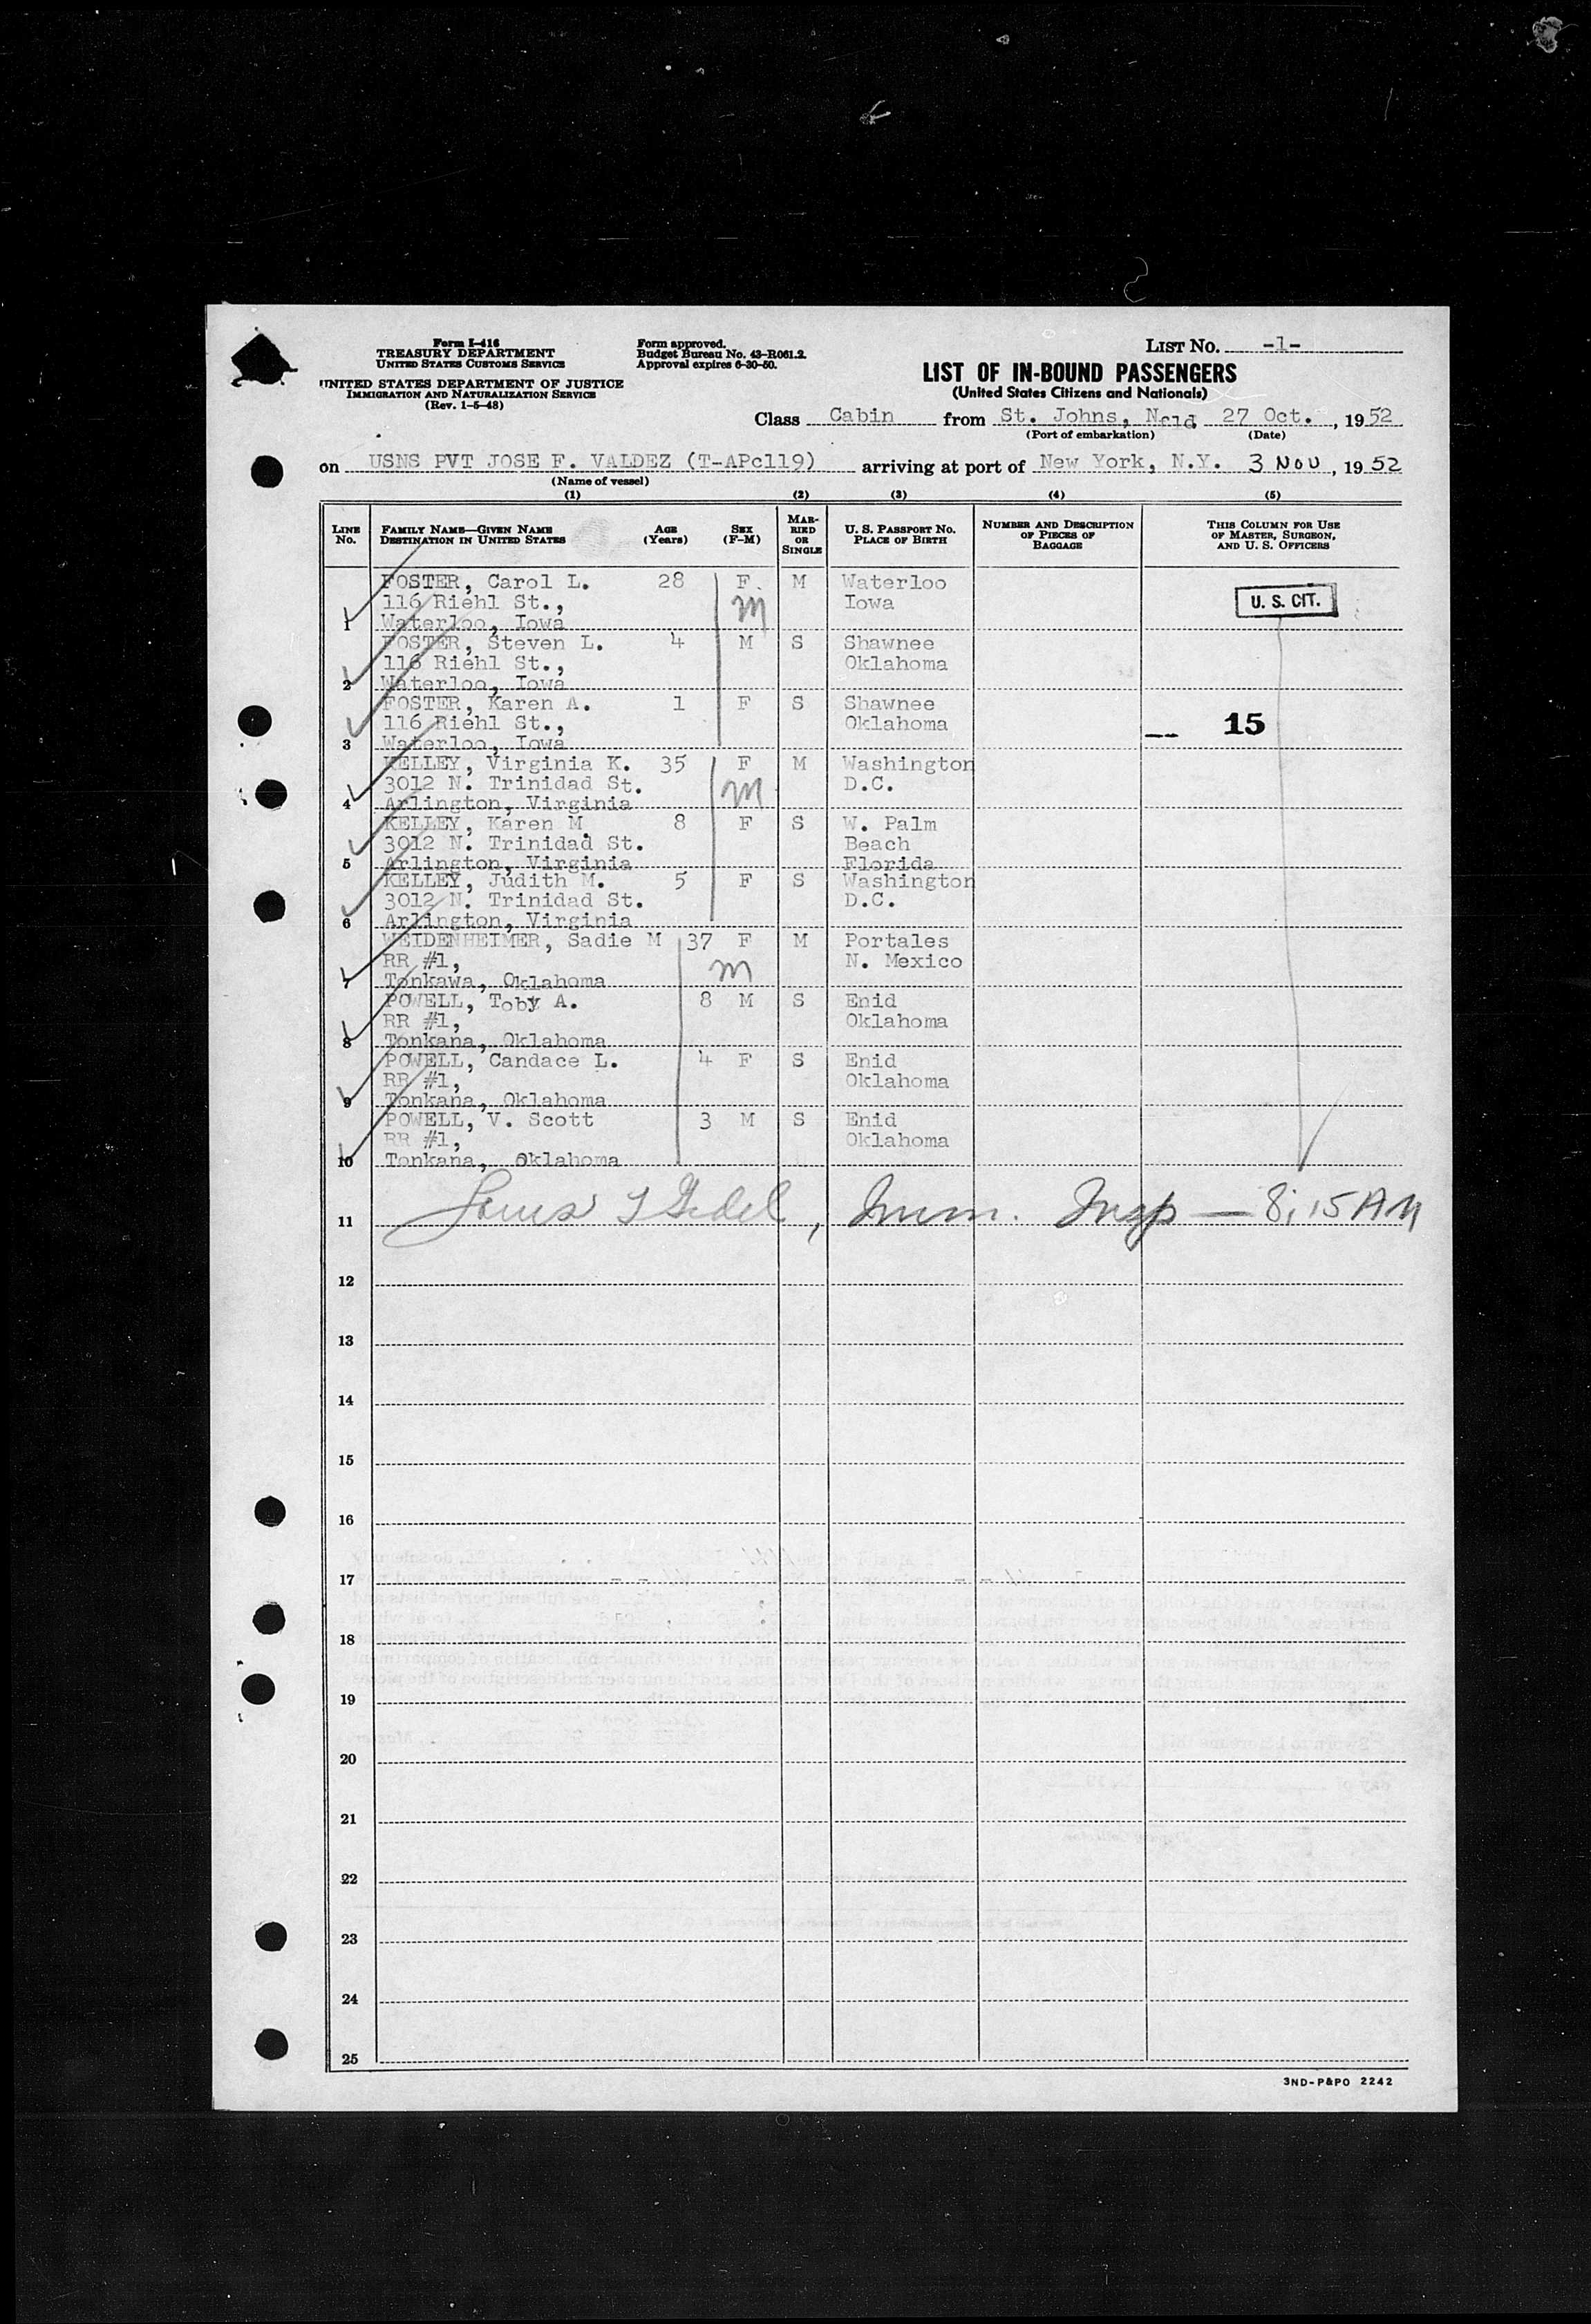 Form I-416
TREASURY DEPARTMENT
UNITED STATES CUSTOMS SERVICE
UNITED STATES DEPARTMENT OF JUSTICE
IMMIGRATION AND NATURALIZATION SERVICE
(Rev. 1-5-48)
Form approved.
Budget Bureau No. 43-R061.2.
Approval expires 6-30-50.
LIST NO. -1-
LIST OF IN-BOUND PASSENGERS
(United States Citizens and Nationals)
Class Cabin from St. Johns, Nfld 27 Oct. , 1952
(Port of embarkation) (Date)
on USNS PVT JOSE F. VALDEZ (T-APc119) arriving at port of New York, N.Y. 3 NOV , 1952
(Name of vessel)
(1) (2) (3) (4) (5)
LINE NO. FAMILY NAME—GIVEN NAME DESTINATION IN UNITED STATES AGE (Years) SEX (F-M) MARRIED OR SINGLE U. S. PASSPORT NO. PLACE OF BIRTH NUMBER AND DESCRIPTION OF PIECES OF BAGGAGE THIS COLUMN FOR USE OF MASTER, SURGEON, AND U. S. OFFICERS
FOSTER, Carol L. 28 F M Waterloo
116 Riehl St., m Iowa U. S. CIT.
1 Waterloo, Iowa
FOSTER, Steven L. 4 M S Shawnee
116 Riehl St., Oklahoma
2 Waterloo, Iowa
FOSTER, Karen A. 1 F S Shawnee
116 Riehl St., Oklahoma 15
3 Waterloo, Iowa
KELLEY, Virginia K. 35 F M Washington
3012 N. Trinidad St. m D.C.
4 Arlington, Virginia
KELLEY, Karen M. 8 F S W. Palm
3012 N. Trinidad St. Beach
5 Arlington, Virginia Florida
KELLEY, Judith M. 5 F S Washington
3012 N. Trinidad St. D.C.
6 Arlington, Virginia
WEIDENHEIMER, Sadie M 37 F M Portales
RR #1, m N. Mexico
7 Tonkawa, Oklahoma
POWELL, Toby A. 8 M S Enid
RR #1, Oklahoma
8 Tonkana, Oklahoma
POWELL, Candace L. 4 F S Enid
RR #1, Oklahoma
9 Tonkana, Oklahoma
POWELL, V. Scott 3 M S Enid
RR #1, Oklahoma
10 Tonkana, Oklahoma
11 , Imm. Insp — 8:15 AM
12
13
14
15
16
17
18
19
20
21
22
23
24
25
3ND-P&PO 2242